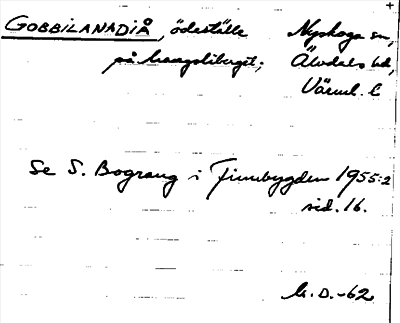 GOBBILANADIÅ, ödeställe Nyskoga sn,
på Mangsliberget; Älvdals hd,
Värml. l
Se S. Bograng i Finnbygden 1955:2
sid. 16.
M.D.-62